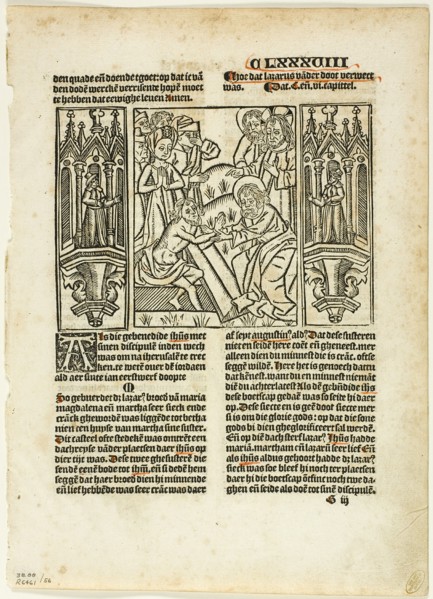 CLXXXVIII
den quade eñ doende tgoet: op dat ic vã
den dodẽ werckẽ verrisende hopẽ moet
te hebben dat eewighe leuen Amen.
Hoe dat lazarus vãder doot verwect
was. Dat. C. eñ. vi. capittel.
Als die gebenedide ihũs met
sinen discipulẽ inden wech
was om na iherusalẽ te trec
ken. te wetẽ ouer dẽ iordaen
ald aer sinte ian eerstwerf doopte
So gebuerdet dz lazar9 broed vã maria
magdalena eñ martha seer sieck ende
crãck gheworde was ligghẽde tot betha
nien in thuyse van martha sine suster.
Dit casteel ofte stedekẽ was omtrẽt een
dachreyse vãder plaetsen daer ihũs op
dier tijt was. Dese twee ghesusterẽ die
sendẽ eenẽ bode tot ihm̃. eñ si dedẽ hem
seggẽ dat haer broed dien hi minnende
eñ lief hebbẽde was seer crãc was daer
af seyt augustin9 ald9 Dat dese susteren
niet en seidẽ here coẽt eñ gheneest. mer
alleen dien du minnest die is crãc. ofte se
seggẽ wildẽ. Here het is genoech dattu
dat kẽnest. want du en minnest niemãt
diẽ du achterlatest Als dẽ gebñdidẽ ihs
dese boetscap gedaẽ was so seide hi daer
op. Dese siecte en is geẽ doot siecte mer
si is om die glorie gods: op dat die sone
gods bi dien gheglorificeert sal werdẽ.
Eñ op diẽ dach sterf lazar9. Ihũs hadde
mariã. martham eñ lazarũ seer lief Eñ
als ihũs aldus gehoort hadde dz lazar9
sieck was soe bleef hi noch ter plaetsen
daer hi die boetscap õtfinc noch twe da-
ghen eñ seide als doẽ tot sinẽ discipulẽ.
S iij